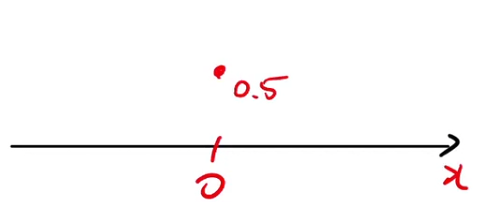 0.5
0
x